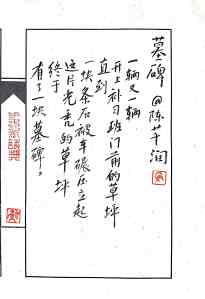 墓碑 @陈芊润
一辆又一辆
开上补习班门前的草坪
直到
一块条石被车碾压立起
这片光秃的草坪
终于
有了块墓碑。